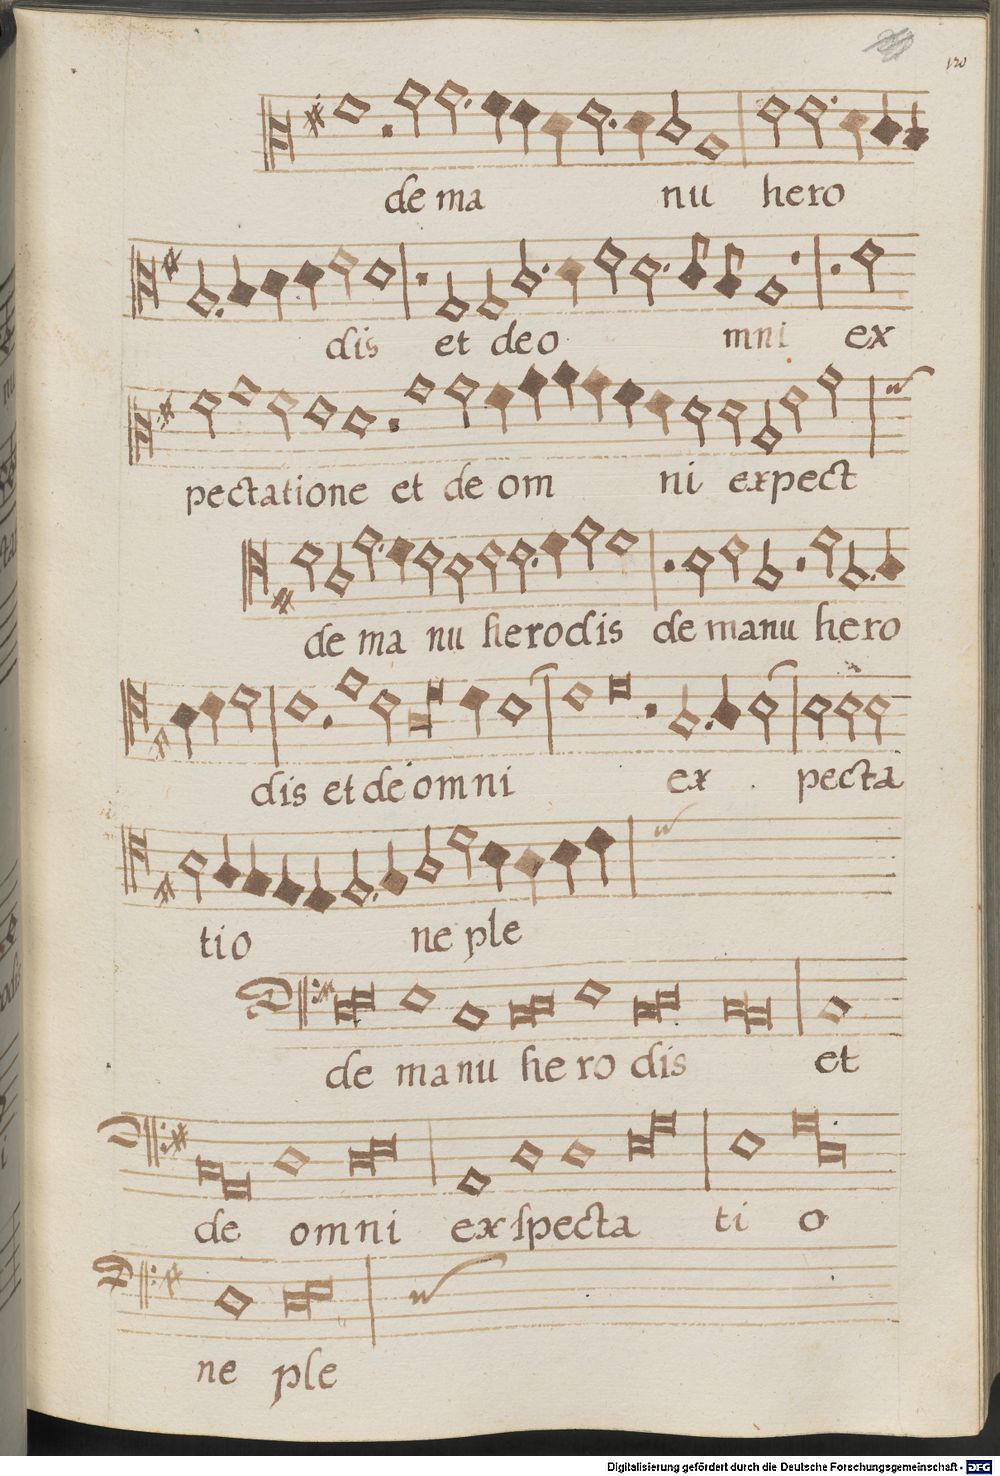 120
de ma nu hero
dis et de o mni ex
pectatione et de om ni expect
de ma nu herodis de manu hero
dis et de omni ex pecta
tio ne ple
de ma nu he ro dis et
de omni exspecta ti o
ne ple
Digitalisierung gefördert durch die Deutsche Forschungsgemeinschaft - DFG